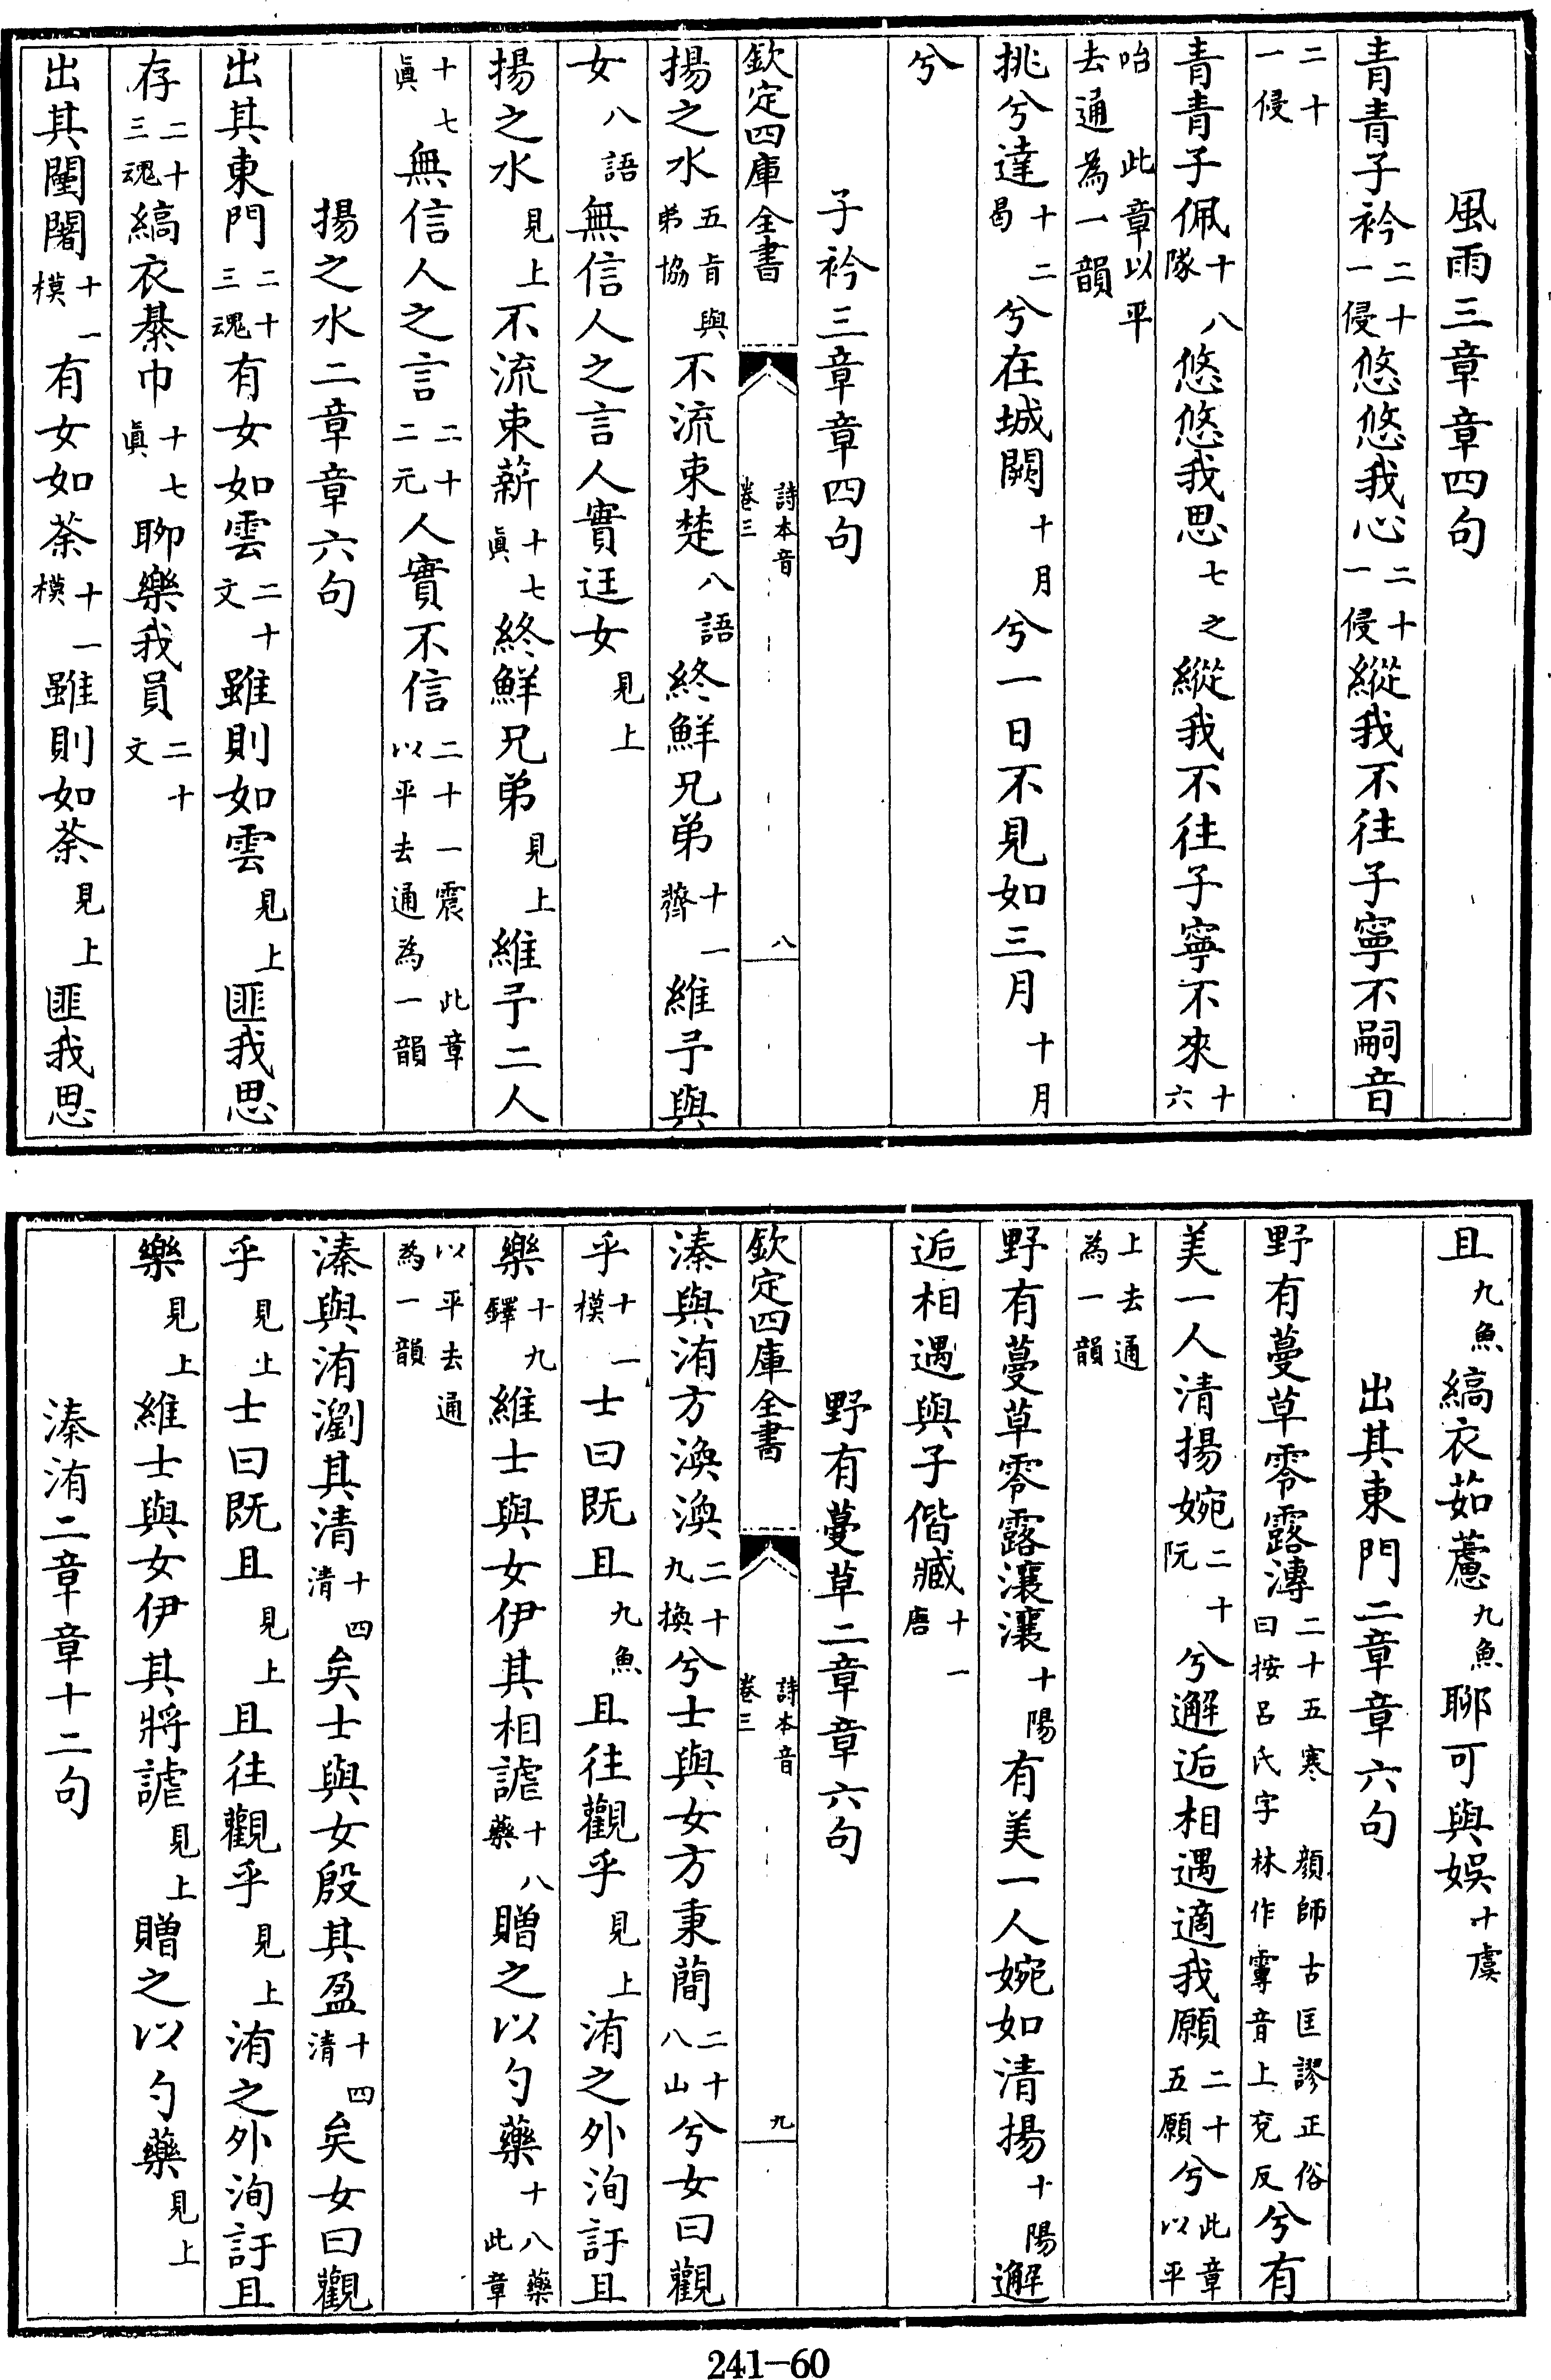 風雨三章章四句
青青子衿二十一侵悠悠我心二十一侵縱我不往子寧不嗣音
二十一侵
青青子佩十八隊悠悠我思七之縱我不往子寧不來十六
咍此章以平去通為一韻
挑兮達十二曷兮在城闕十月兮一日不見如三月十月
兮
子衿三章章四句
欽定四庫全書
詩本音卷三
八
揚之水五旨與弟協不流束楚八語終鮮兄弟十一薺維予與
女八語無信人之言人實迋女見上
揚之水見上不流束薪十七眞終鮮兄弟見上維予二人
十七眞無信人之言二十二元人實不信二十一震此章以平去通為一韻
揚之水二章章六句
出其東門二十三魂有女如雲二十文雖則如雲見上匪我思
存二十三魂縞衣綦巾十七眞聊樂我員二十文
出其闉闍十一模有女如荼十一模雖則如荼見上匪我思
且九魚縞衣茹藘九魚聊可與娛十虞
出其東門二章章六句
野有蔓草零露漙二十五寒顔師古匡謬正俗曰按呂氏字林作𩅧音上兖反兮有
美一人清揚婉二十阮兮邂逅相遇適我願二十五願兮此章以平
上去通為一韻
野有蔓草零露瀼瀼十陽有美一人婉如清揚十陽邂
逅相遇與子偕臧十一唐
野有蔓草二章章六句
欽定四庫全書
詩本音卷三
九
溱與洧方渙渙二十九換兮士與女方秉蕑二十八山兮女曰觀
乎十一模士曰既且九魚且往觀乎見上洧之外洵訏且
樂十九鐸維士與女伊其相謔十八藥贈之以勺藥十八藥此章
以平去通為一韻
溱與洧瀏其清十四清矣士與女殷其盈十四清矣女曰觀
乎見上士曰既且見上且往觀乎見上洧之外洵訏且
樂見上維士與女伊其將謔見上贈之以勺藥見上
溱洧二章章十二句
241-60